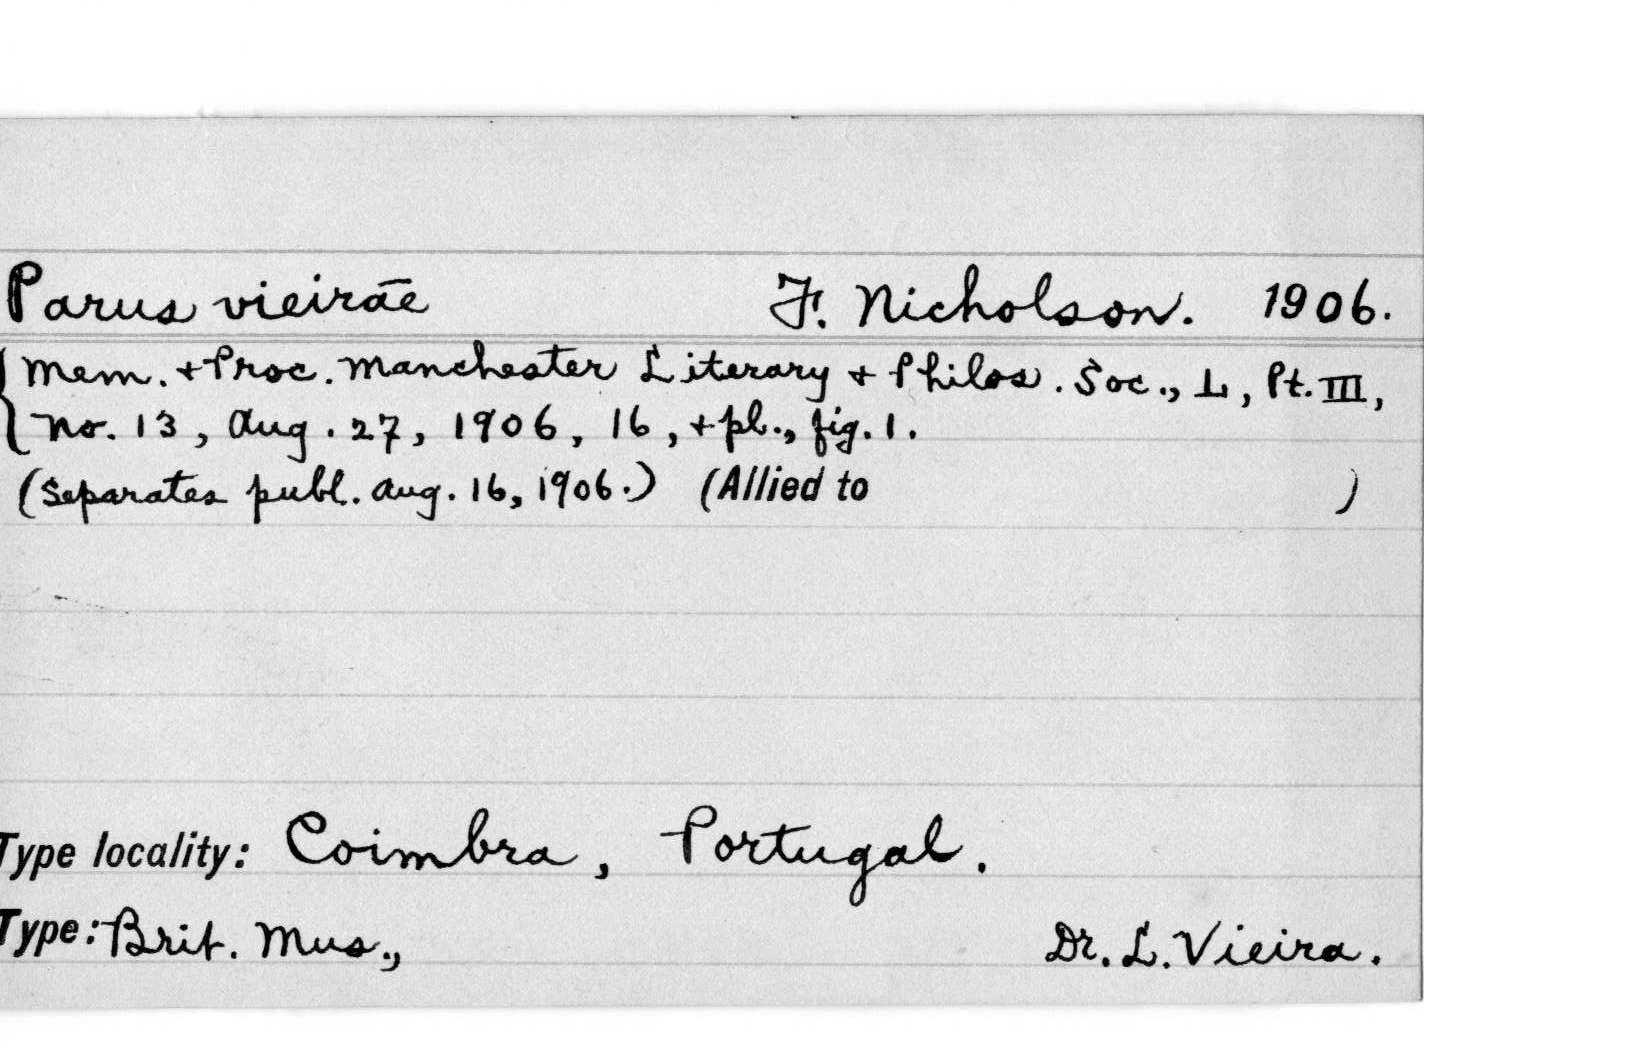 Parus vieirae F. Nicholson. 1906.
Mem. + Proc. Manchester Literary + Philos. Soc., L, Pt. III,
No. 13, Aug. 27, 1906, 16, + pl., fig. 1.
(Separates publ. Aug. 16, 1906.) (Allied to )
Type locality: Coimbra, Portugal.
Type: Brit. Mus., Dr. L. Vieira.